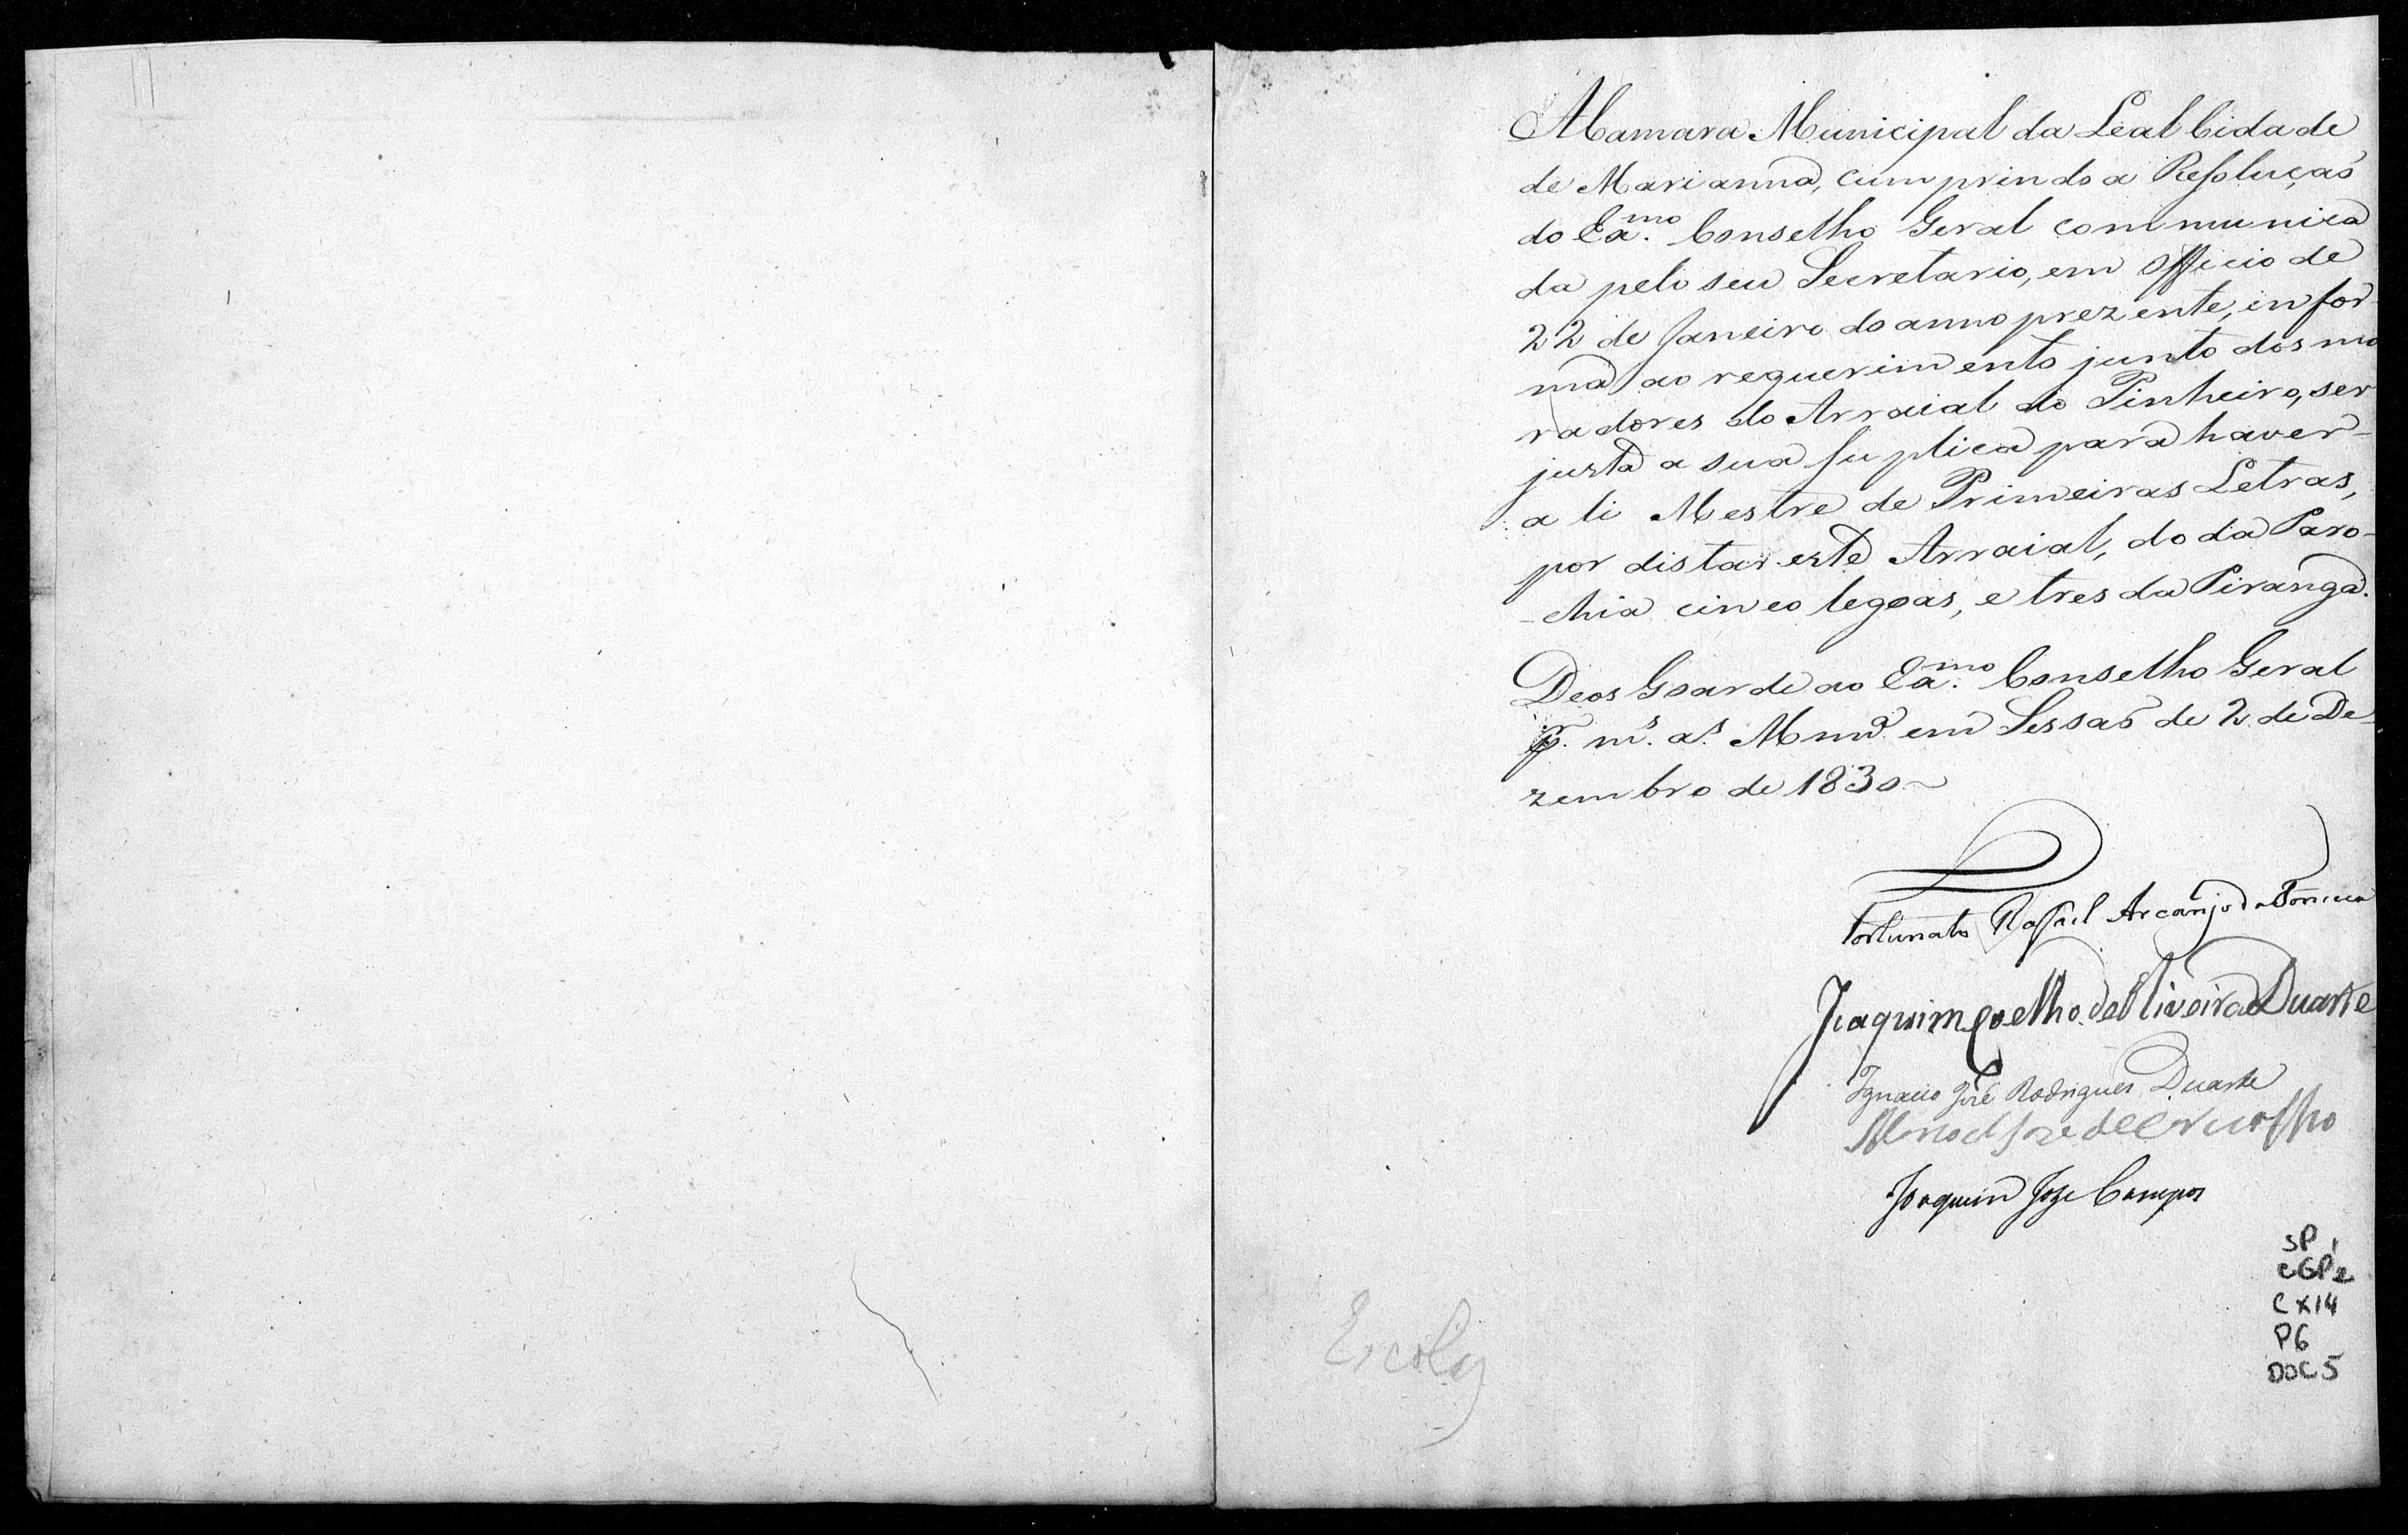 A Camara Municipal da Leal Cidade
de Marianna, cumprindo a Resoluçaõ
do Ex.mo Conselho Geral communica
da pelo seu Secretario, em Officio de
22 de Janeiro do anno prezente, infor
ma ao requerimento junto dos mo
radores do Arraial do Pinheiro, ser
justa a sua suplica para haver-
ali Mestre de Primeiras Letras,
por distar este Arraial, do da Paro-
-chia cinco legoas, e tres da Piranga.
Deos Goarde ao Ex.mo Conselho Geral
p.r m.s a.s Mna.em Sessaõ de 2 de De
zembro de 1830
Fortunato Rafael Arcanjo da Fonseca
Joaquim Coelho de Oliveira Duarte
Ignacio José Rodrigues Duarte
Joaquim Joze Campos
Escolas
SP 1
CGP 2
CX 14
P6
DOC 5